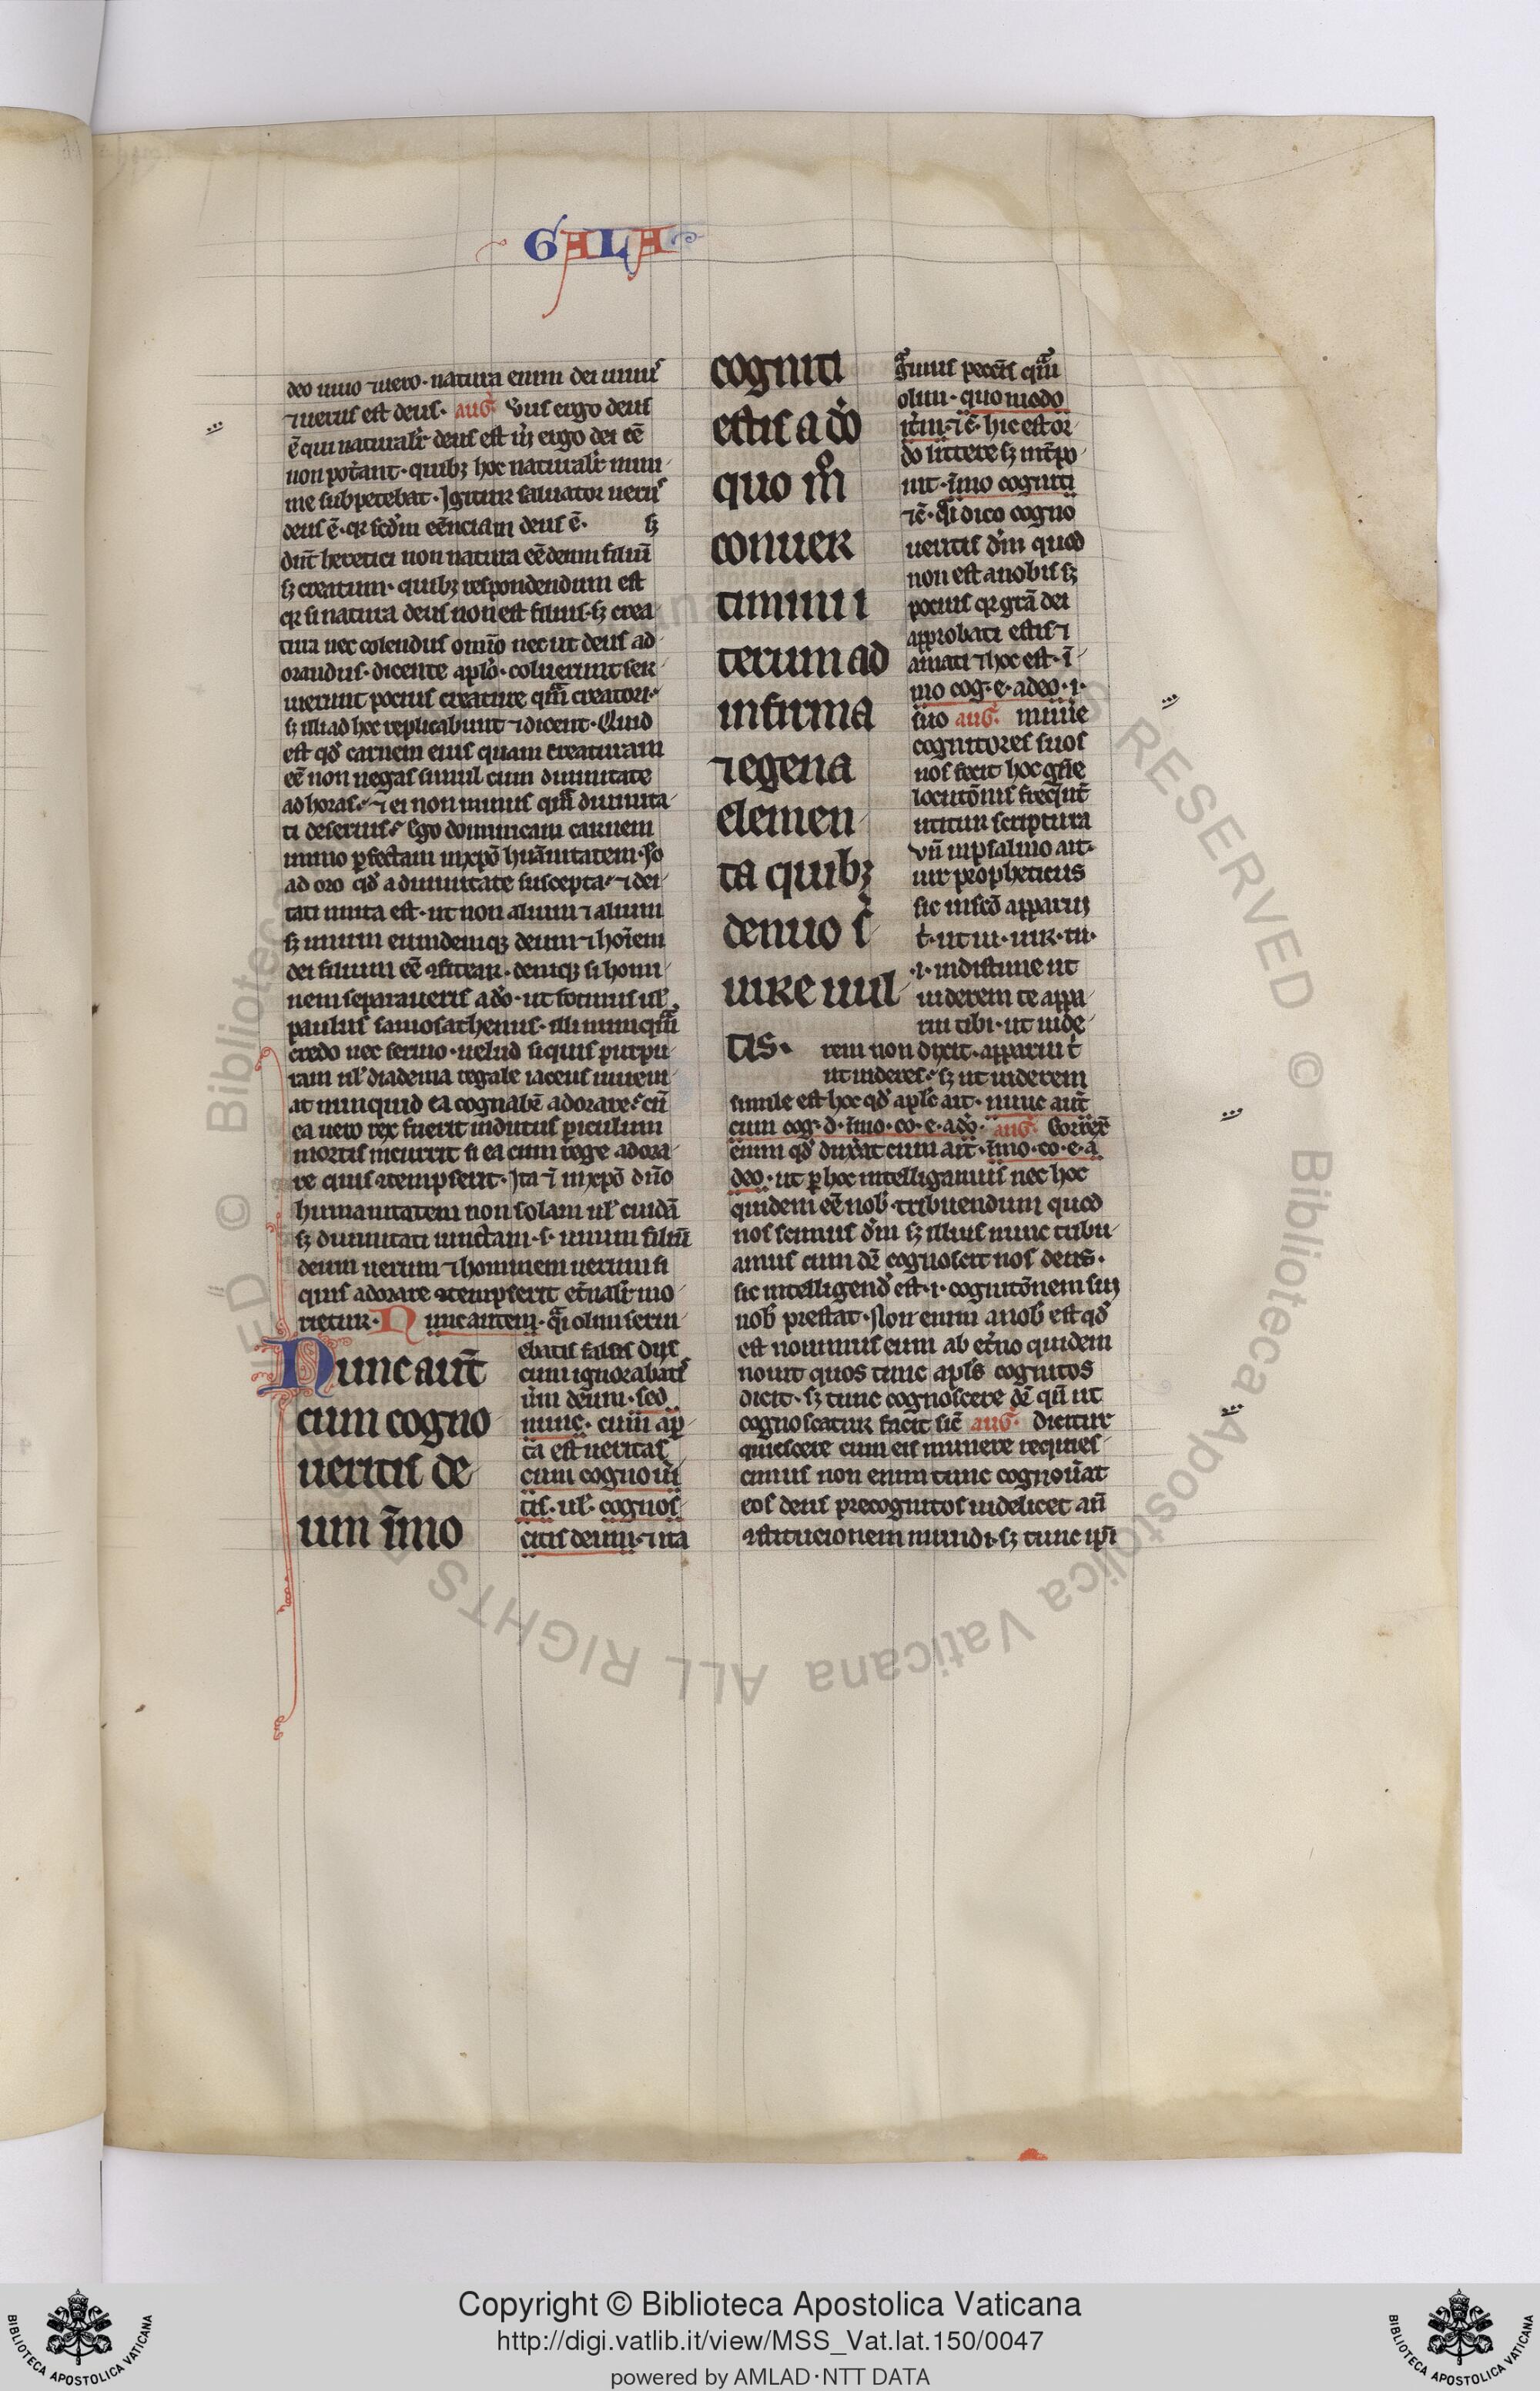 GALA
deo uno ⁊ uero · natura enim dei unuſ
⁊ ueruſ eſt deuſ · aug̃ · Vnſ ergo deuſ
ē qui naturalr̃ deuſ eſt
non potant · quibꝫ hoc naturalr̃ mini
me ſubpetebat · Igitur ſaluator ueruſ
deuſ ē · qꝛ ſcdm eẽnciam deuſ ē · ſꝫ
dn̄t heretici non natura eē deum filiū
ſꝫ creatum · quibꝫ reſpondendum eſt
qꝛ ſi natura deuſ non eſt filiuſ · ſꝫ crea
tura nec colenduſ omīo nec ut deuſ ad
oranduſ · dicente aplo · coluerunt ſer
uierunt pociuſ creature qm̄ creatori ·
ſꝫ illi ad hec replicabunt ⁊ dicent · Quid
eſt qd̓ carnem eiuſ quam creaturam
eē non negaſ ſimul cum diuinitate
adhoraſ · ⁊ ei non minuſ qm̄ diuinita
ti deſeruiſ · Ego dominicam carnem
immo ꝑfectam in xp̄o huānitatem · Io
ad oro qd̓ a diuinitate ſuſcepta · ⁊ dei
tati unita eſt · ut non alium ⁊ alium
ſꝫ unum eundemqꝫ deum ⁊ hoīem
dei filium eē ꝯfitear · deniqꝫ ſi homi
nem ſeparaueriſ a do · ut fotinuſ ul̓
pauluſ ſamoſathenuſ · illi nunqm̄
credo nec ſeruio · uelud ſi quiſ purpu
ram ul̓ diadema regale iacenſ inueni
at nunquid ea cognabē adorare · cū
ea uero rex fuerit indutuſ ꝑiculum
mortiſ incurrit ſi ea cum rege adora
re quiſ ꝯtempſerit · Ita ⁊ in xp̄o dn̄o
humanitatem non ſolam ul̓ cuidā
ſꝫ diuinitati iunctam · ſ · unum filiū
deum uerum ⁊ hominem uerum ſi
quiſ adorare ꝯtempſerit et̓nalr̃ mo
rietur · Nunc autem · qͣſi olim ſerui
Nunc aut̄
cum cogno
ueritiſ de
um īmo
ebatiſ falſiſ dijſ
cum ignorabatiſ
um deum · ſed
nunc · cum ap̱
ta eſt ueritaſ
cum cognoui
tiſ · ul̓ · cognoſ
citiſ deum · ⁊ ita
cogniti
eſtiſ a do
quo mͦ
conuer
timini i
terum ad
infirma
⁊ egena
elemen
ta quibꝫ
denuo ſ̓
uire uul
tiſ ·
grͣuiuſ peccēſ qm̄
olim · quo modo
it̓um · ⁊c̄ · hic eſt or
do littere ſꝫ int̓po
nit · īmo cogniti
⁊c̄ · qͣſi dico cogno
ueritiſ dm̄ quod
non eſt a nobiſ ſꝫ
pociuſ qꝛ grā dei
approbati eſtiſ ⁊
amati ⁊ hoc eſt · ī
mo cog · e · a deo · i ·
ſuo aug̃ · munē
cognitoreſ ſuoſ
noſ fecit hoc gn̄e
locutōniſ freqn̄t̓
utitur ſcriptura
Vn̄ in pſalmo ait
uir propheticuſ
ſic in ſcō apparui
t̓ · ut ui · uir · tu ·
· i · indiſtinē ut
uiderem te appa
rui tibi · ut uide
rem non dixit · apparui t̓
ut uidereſ · ſꝫ ut uiderem
ſimile eſt hoc qd̓ aplſ ait · nunc aut̄
cum cog · d · īmo · co · e · a do · aug̃ · Correx̄
enim qd̓ dixat cum ait · īmo · co · e · a
deo · ut ꝑ hoc intelligamuſ nec hoc
quidem eē nob̓ tribuendum quod
noſ ſcimuſ dm̄ ſꝫ illiuſ nunc tribu
amuſ cum dr̄ cognoſcit noſ deuſ ·
ſic intelligend̓ eſt · i · cognitōnem ſui
nob̓ preſtat · Non enim a nob̓ eſt qd̓
eſt nouimuſ eum ab et̓no quidem
nouit quoſ tunc aplſ cognitoſ
dicit · ſꝫ tunc cognoſcere dr̄ qn̄ ut
cognoſcatur facit ſic̄ aug̃ · dicitur
quieſcere cum eiſ munere requieſ
cimuſ non enim tunc cognouat
eoſ deuſ precognitoſ uidelicet an̄
ꝯſtitucionem mundi · ſꝫ tunc ipſi
Copyright © Biblioteca Apostolica Vaticana
http://digi.vatlib.it/view/MSS_Vat.lat.150/0047
powered by AMLAD·NTT DATA
BIBLIOTECA APOSTOLICA VATICANA
BIBLIOTECA APOSTOLICA VATICANA
© Biblioteca Apostolica Vaticana ALL RIGHTS RESERVED